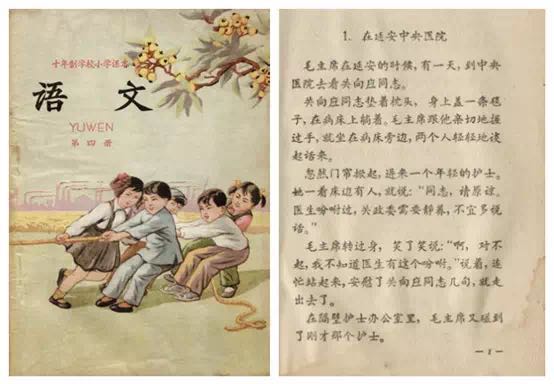 十年制学校小学课本
语文
YUWEN
第四册
1. 在延安中央医院
毛主席在延安的时候，有一天，到中央
医院去看关向应同志。
关向应同志垫着枕头，身上盖一条毯
子，在病床上躺着。毛主席跟他亲切地握
过手，就坐在病床旁边，两个人轻轻地谈
起话来。
忽然门帘掀起，进来一个年轻的护士。
她一看床边有人，就说：“同志，请原谅。
医生吩咐过，关政委需要静养，不宜多说
话。”
毛主席转过身，笑了笑说：“啊，对不
起，我不知道医生有这个吩咐。”说着，连
忙站起来，安慰了关向应同志几句，就走
出去了。
在隔壁护士办公室里，毛主席又碰到
了刚才那个护士。
— 1 —